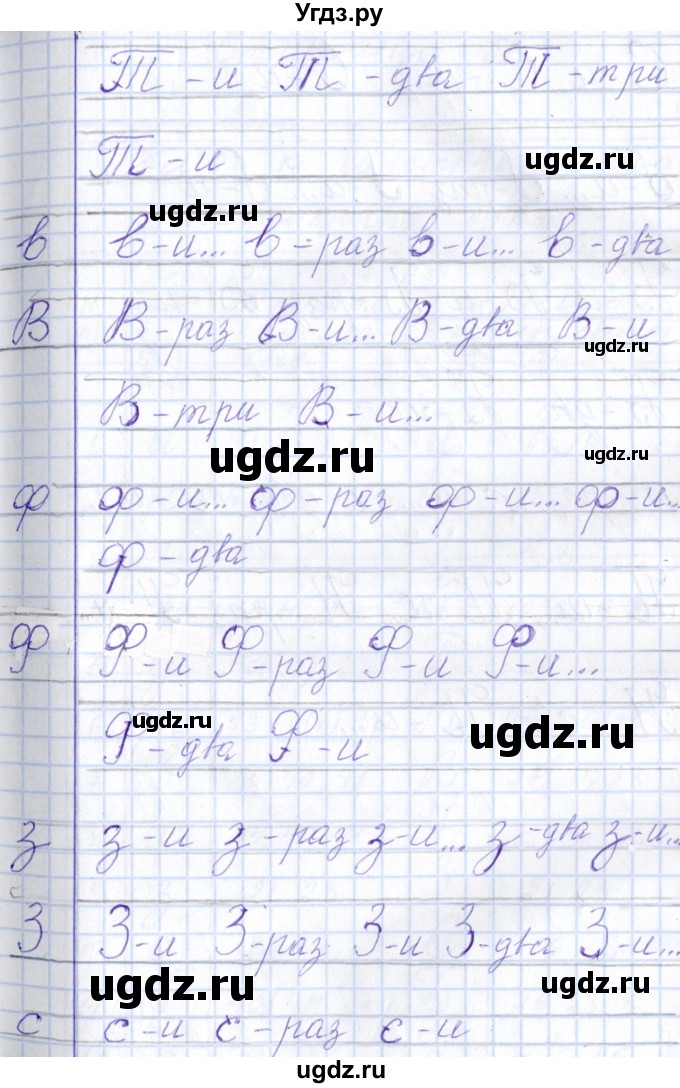 Угдз.ру
Т - и Т - два Т - три
Т - и
ugdz.ru
ugdz.ru
в в-и... в - раз в-и... в - два
В В-раз В-и... В-два В-и
ugdz.ru
В-три В-и...
ugdz.ru
ugdz.ru
ф ф-и... ф-раз ф-и... ф-и...
ф - два
Ф Ф-и Ф-раз Ф-и Ф-и...
ugdz.ru
ugdz.ru
Ф-два Ф-и
з з-и з-раз з-и... з-два з-и...
З З-и З-раз З-и З-два З-и...
ugdz.ru
ugdz.ru
с с-и с-раз с-и
ugdz.ru